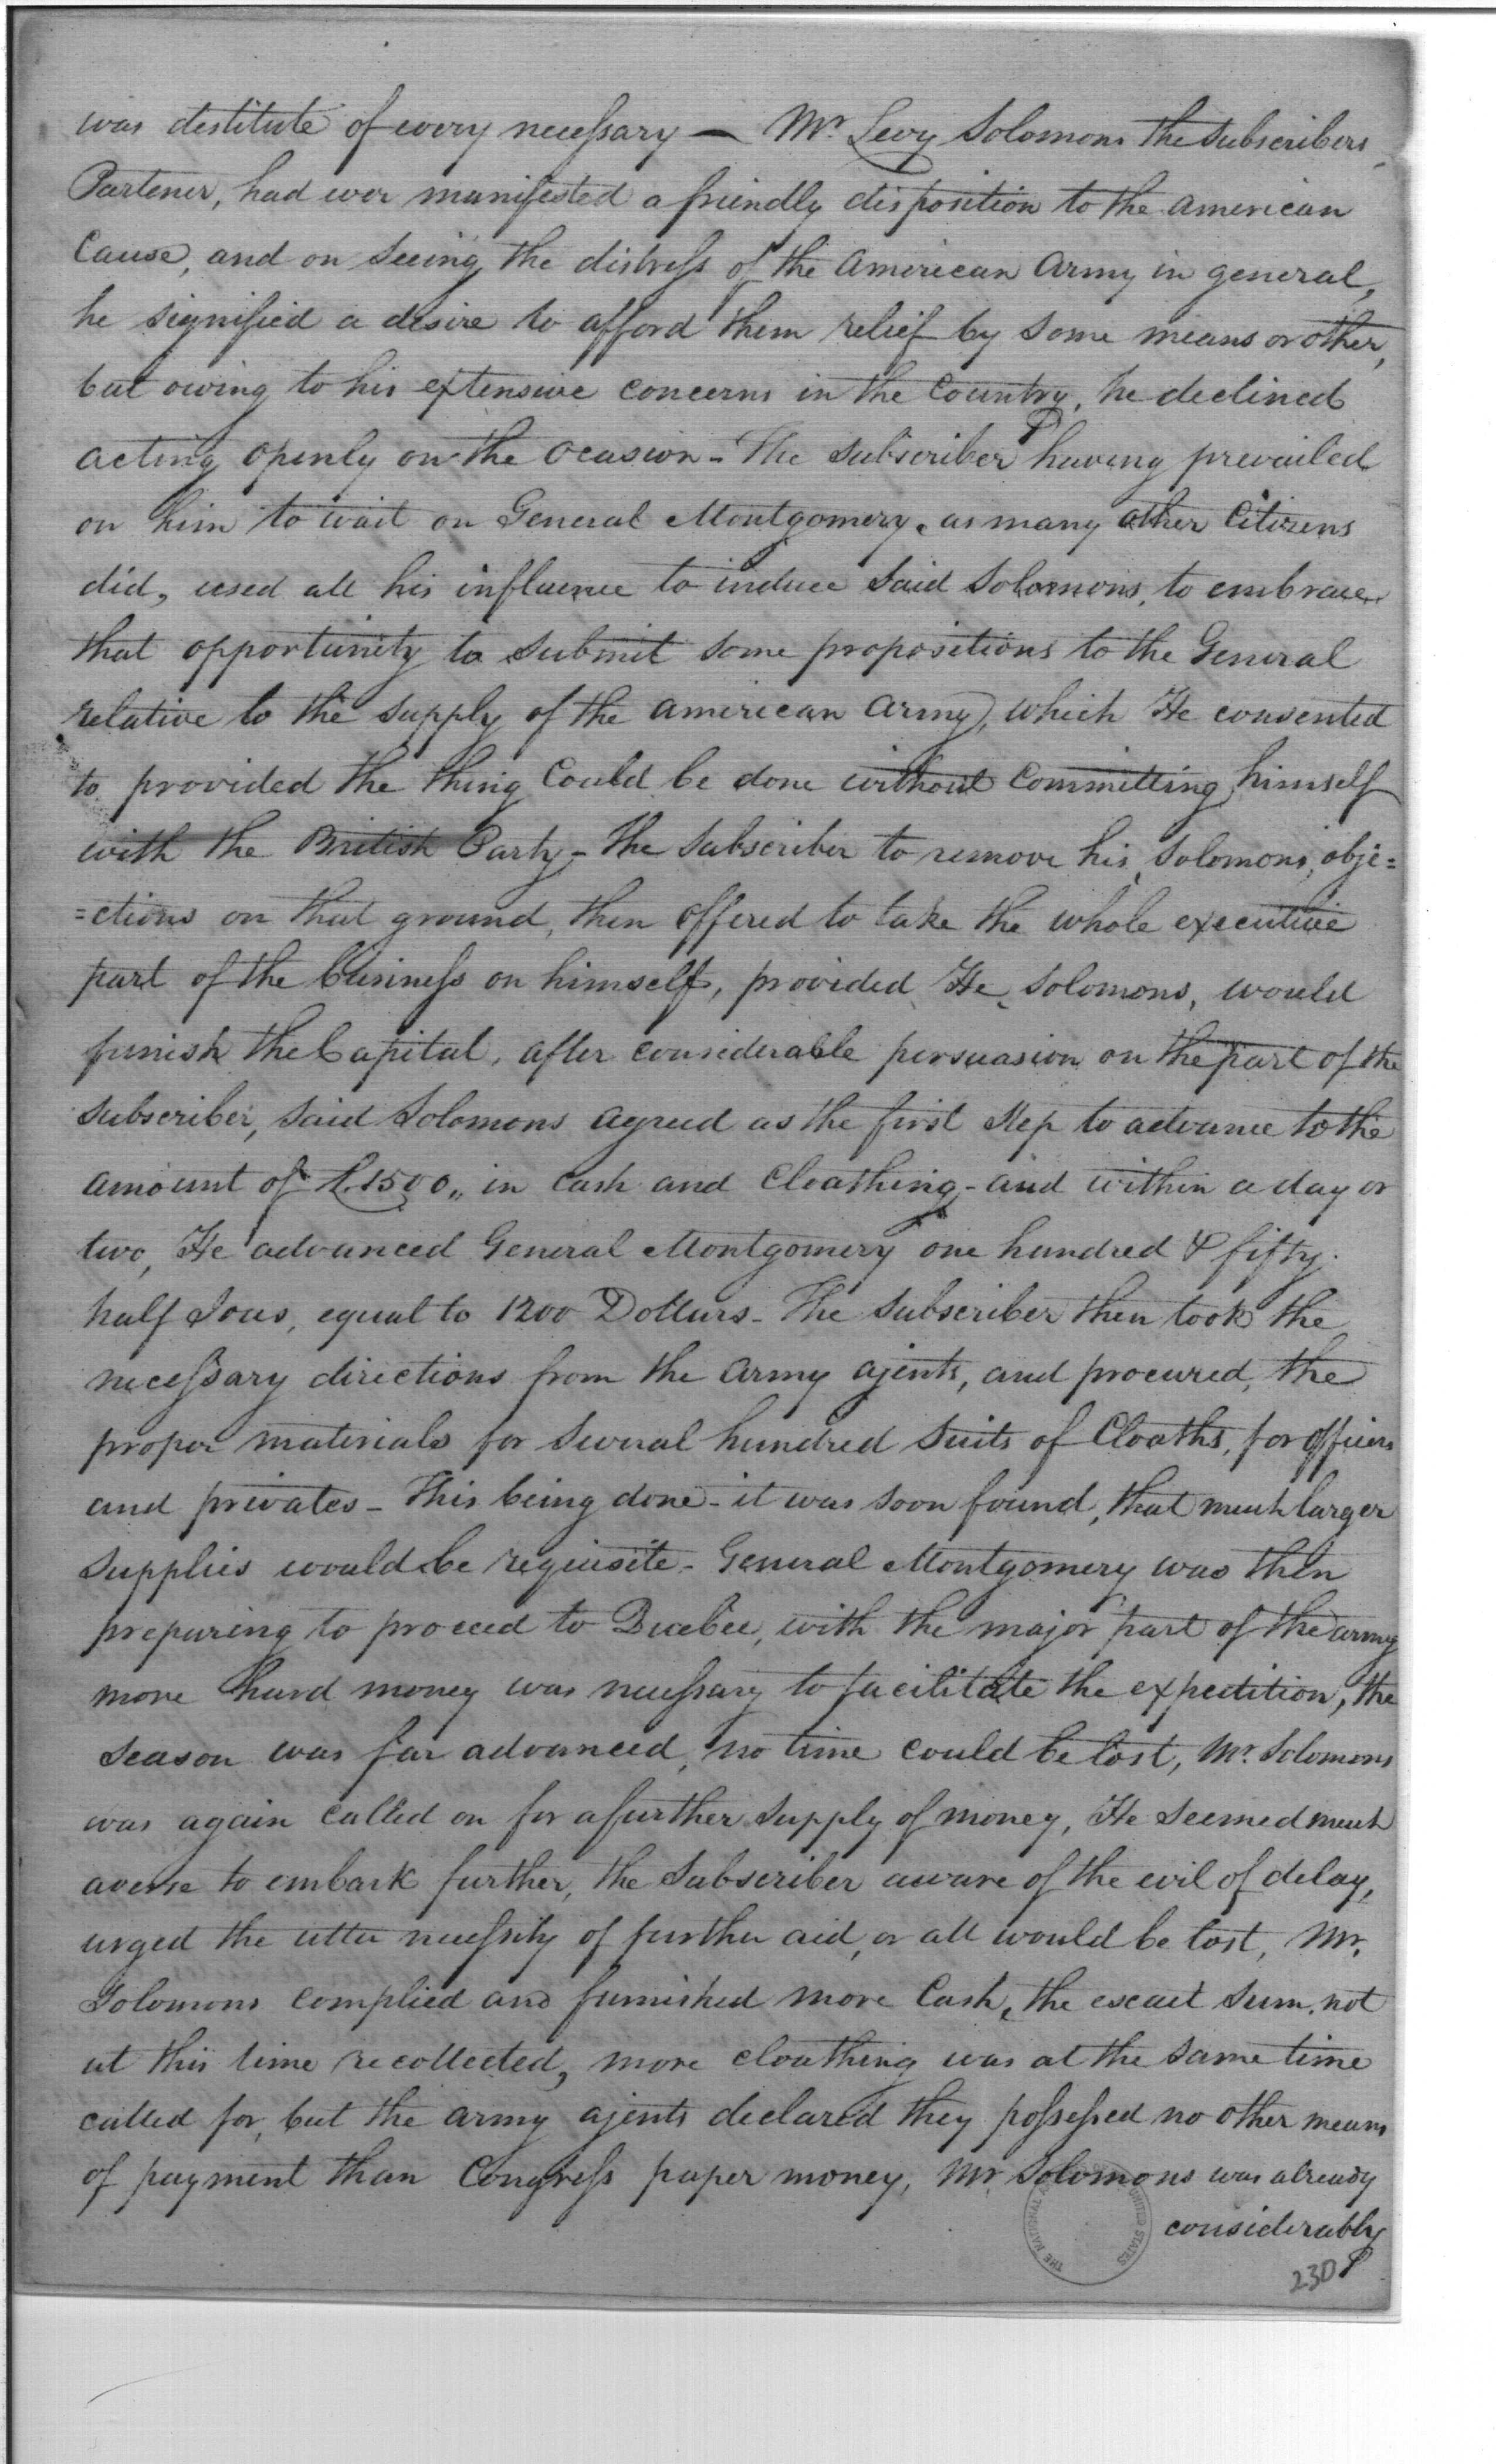 was destitute of every necessary — Mr. Levy Solomons the Subscribers
Partener, had ever manifested a friendly disposition to the American
Cause, and on seeing the distress of the American Army in general,
he signified a desire to afford them relief by some means or other,
but owing to his extensive concerns in the Country, he declined
acting openly on the ocasion - The Subscriber having prevailed
on him to wait on General Montgomery, as many other Citizens
did, used all his influence to induce said Solomons, to embrace
that opportunity to submit some propositions to the General
relative to the supply of the American Army, which He consented
to provided the thing Could be done without Committing himself
with the British Party - The Subscriber to remove his, Solomons, obje=
=ctions on that ground, then offered to take the whole executive
part of the business on himself, provided He, Solomons, would
funish the Capital, after considerable persuasion on the part of the
Subscriber, said Solomons agreed as the first Step to advance to the
amount of £1500,, in Cash and Cloathing - and within a day or
two, He advanced General Montgomery one hundred & fifty
half Joes, equal to 1200 Dollars - The Subscriber then took the
necessary directions from the Army ajents, and procured, the
proper materials for several hundred Suits of Cloaths, for officers
and privates - This being done - it was soon found, that much larger
Supplies would be requisite - General Montgomery was then
preparing to proceed to Quebec, with the major part of the army
more hard money was necessary to facilitate the expedition, the
Season was far advanced, no time could be lost, Mr. Solomons
was again called on for a further supply of money, He seemed much
averse to embark further, the Subscriber aware of the evil of delay,
urged the utter necessity of further aid, or all would be lost, Mr.
Solomons complied and furnished more Cash, the escact sum, not
at this time recollected, more cloathing was at the same time
called for, but the army ajents declared they possessed no other means
of payment than Congress paper money, Mr. Solomons was already
considerably
THE NATIONAL UNITED STATES
230